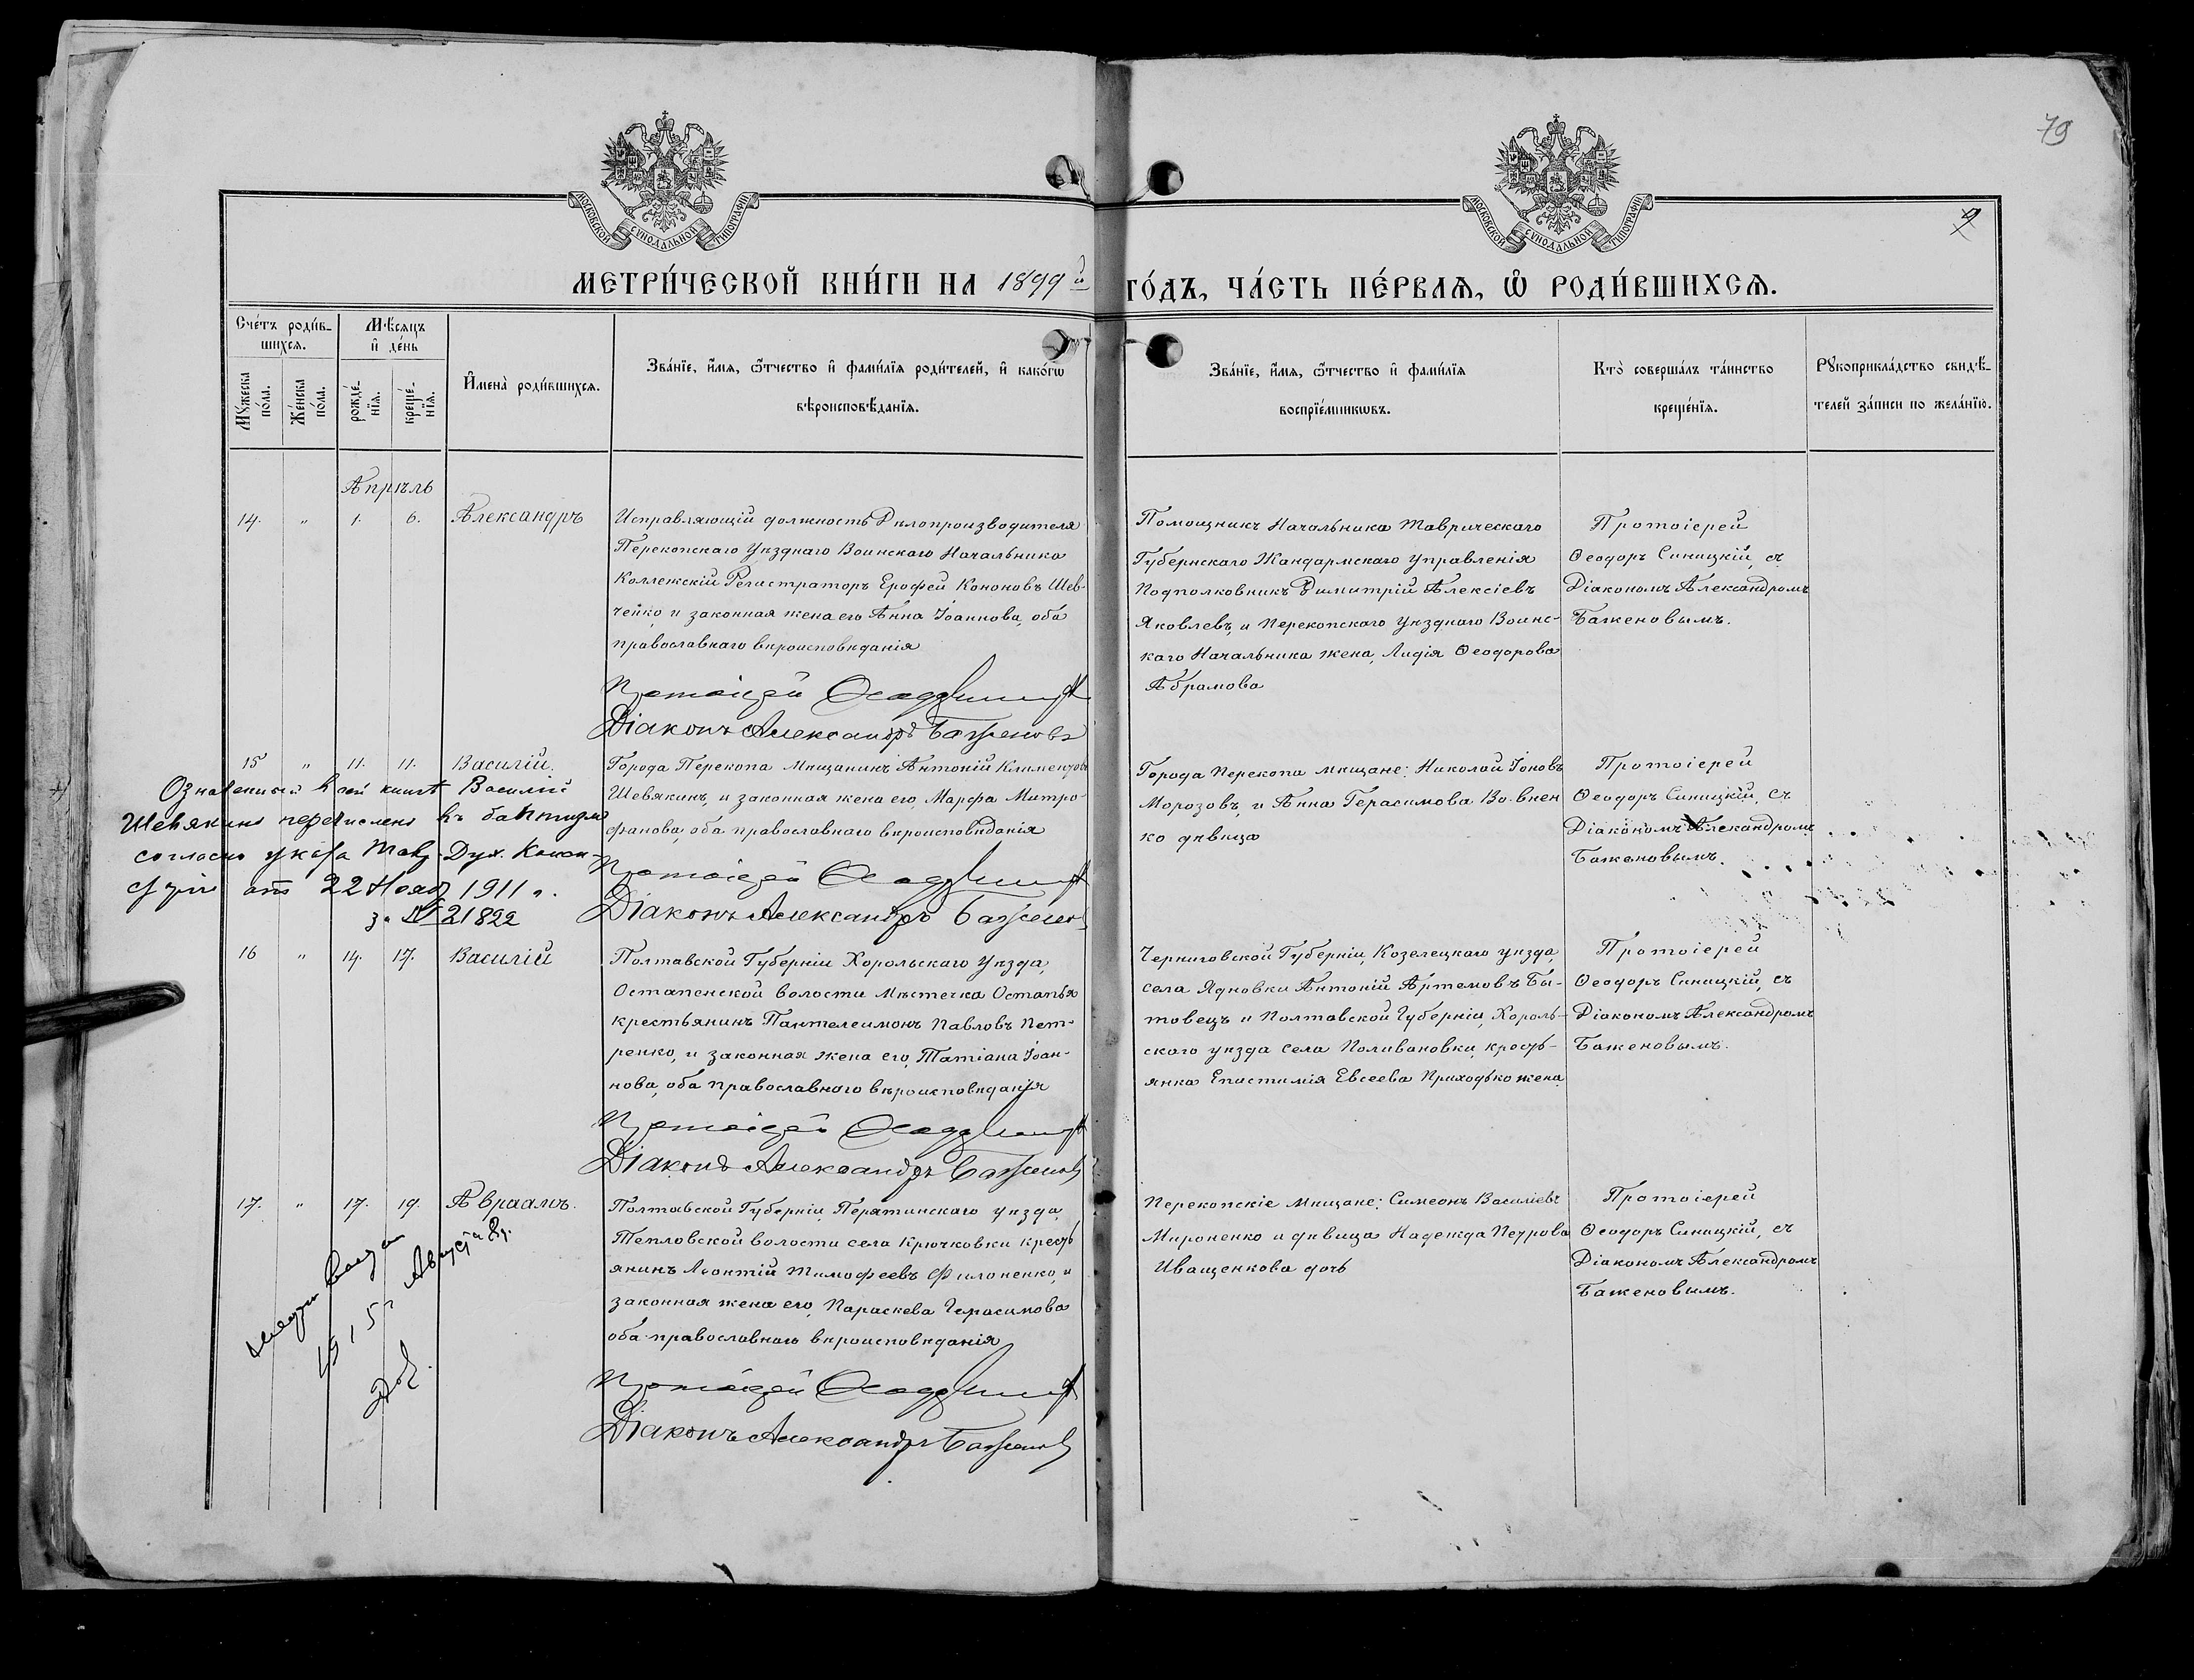 79
9
МОСКОВСКОЙ СѴНОДАЛЬНОЙ ТИПОГРАФІИ
МОСКОВСКОЙ СѴНОДАЛЬНОЙ ТИПОГРАФІИ
МЕТРИ́ЧЕСКОЙ КНИ́ГИ НА 1899й ГО́ДЪ, ЧА́СТЬ ПЕ́РВАѦ, Ѡ҆ РОДИ́ВШИХСѦ.
Сче́тъ роди́в-
шихсѧ.
Мꙋ́жеска
по́ла.
Же́нска
по́ла.
Мѣ́сяцъ
и҆ де́нь
рожде́-
нїѧ.
креще́-
нїѧ.
И҆мена̀ роди́вшихсѧ.
Зва́нїе, и҆́мѧ, ѻ҆́тчество и҆ фами́лїѧ роди́телей, и҆ како́гѡ
вѣроисповѣ́данїѧ.
Зва́нїе, и҆́мѧ, ѻ҆́тчество и҆ фами́лїѧ
воспрїе́мникѡвъ.
Кто̀ соверша́лъ та́инство
креще́нїѧ.
Рꙋкоприкла́дство свидѣ́-
телей за́писи по жела́нїю.
Апрѣль
14. " 1. 6. Александръ
Исправляющій должность Дѣлопроизводителя
Перекопскаго Уѣзднаго Воинскаго Начальника
Коллежскій Регистраторъ Ерофей Кононовъ Шев-
ченко, и законная жена его Анна Іоаннова, оба
православнаго вѣроисповѣданія
Протоіерей Ѳеодоръ Синицкій
Діаконъ Александръ Баженовъ
Помощникъ Начальника Таврическаго
Губернскаго Жандармскаго Управленія
Подполковникъ Димитрій Алексіевъ
Яковлевъ, и Перекопскаго Уѣзднаго Воинс-
каго Начальника жена, Лидія Ѳеодорова
Абрамова
Протоіерей
Ѳеодоръ Синицкій, съ
Діакономъ Александромъ
Баженовымъ.
15 " 11. 11. Василій.
Города Перекопа Мѣщанинъ Антоній Климентовъ
Шевякинъ, и законная жена его, Марфа Митро-
фанова, оба православнаго вѣроисповѣданія
Протоіерей Ѳеодоръ Синицкій
Діаконъ Александръ Баженовъ
Города Перекопа мѣщане: Николай Іоновъ
Морозовъ, и Анна Герасимова
ко дѣвица
Протоіерей
Ѳеодоръ Синицкій, съ
Діакономъ Александромъ
Баженовымъ.
Означенный въ сей книгѣ Василій
Шевякинъ перечисленъ въ баптизмъ
согласно указа Тавр. Дух. Конси-
сторіи отъ 22 Нояб 1911 г.
за № 21822
16 " 14. 17. Василій
Полтавской Губерніи Хорольскаго Уѣзда,
Остапенской волости Мѣстечка Остапья
крестьянинъ Пантелеимонъ Павловъ Пет-
ренко, и законная жена его, Татіана Іоан-
нова, оба православнаго вѣроисповѣданія
Протоіерей Ѳеодоръ Синицкій
Діаконъ Александръ Баженовъ
Черниговской Губерніи, Козелецкаго уѣзда,
села Ядновки Антоній Артемовъ Бы-
товецъ и Полтавской Губерніи, Хороль-
скаго уѣзда села Поливановки, кресть-
янка Епистимія Евсеева Приходько жена
Протоіерей
Ѳеодоръ Синицкій, съ
Діакономъ Александромъ
Баженовымъ.
17. " 17. 19. Авраамъ.
Полтавской Губерніи, Пирятинскаго уѣзда,
Тепловской волости села Крючковки крестъ
янинъ Леонтій Тимофеевъ Филоненко, и
законная жена его, Параскева Герасимова
оба православнаго вѣроисповѣданія
Протоіерей Ѳеодоръ Синицкій
Діаконъ Александръ Баженовъ
Перекопскіе мѣщане: Симеонъ Василіевъ
Мироненко и дѣвица Надежда Петрова
Иващенкова дочь
Протоіерей
Ѳеодоръ Синицкій, съ
Діакономъ Александромъ
Баженовымъ.
выдан
1915 г Августа 8 д.